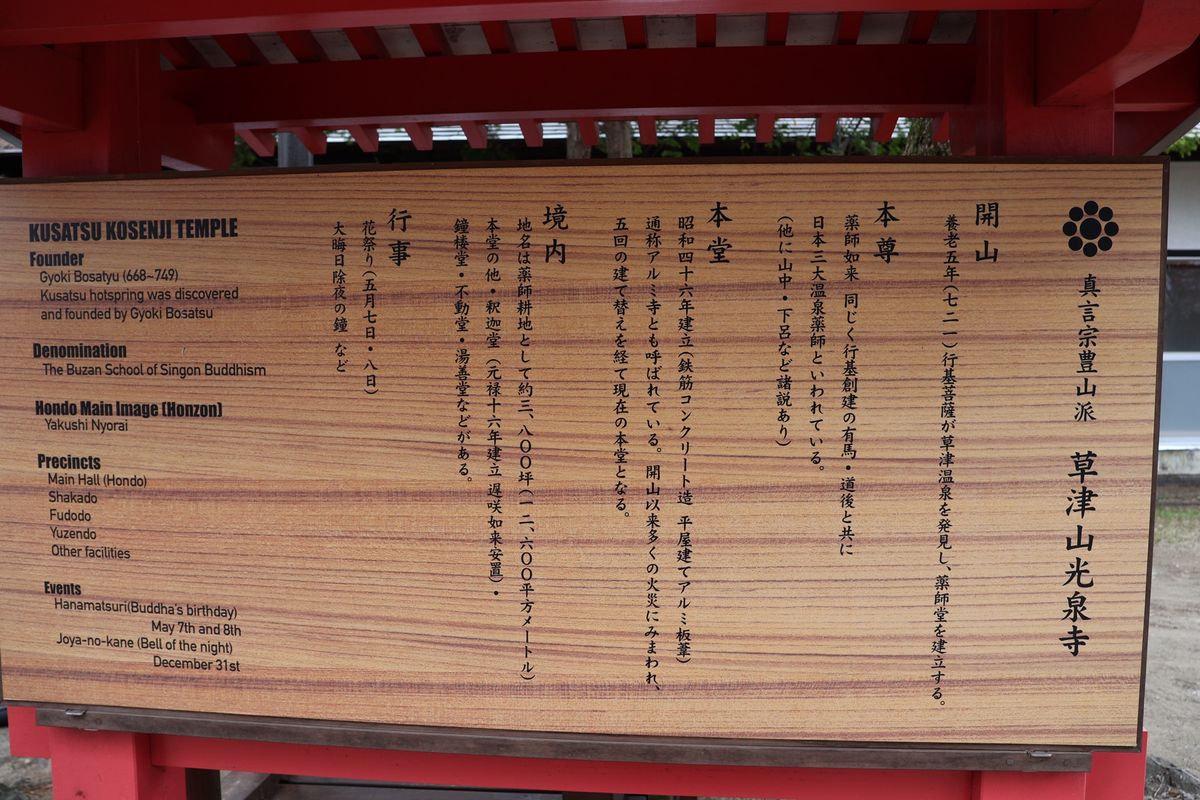 真言宗豊山派 草津山光泉寺
開山
養老五年(七二一)行基菩薩が草津温泉を発見し、薬師堂を建立する。
本尊
薬師如来 同じく行基創建の有馬・道後と共に
日本三大温泉薬師といわれている。
(他に山中・下呂など諸説あり)
本堂
昭和四十六年建立(鉄筋コンクリート造 平屋建てアルミ板葺)
通称アルミ寺とも呼ばれている。 開山以来多くの火災にみまわれ、
五回の建て替えを経て現在の本堂となる。
境内
地名は薬師耕地として約三、八〇〇坪(一二、六〇〇平方メートル)
本堂の他・釈迦堂 (元禄十六年建立 遅咲如来安置)・
鐘楼堂・不動堂・湯善堂などがある。
行事
花祭り(五月七日・八日)
大晦日除夜の鐘 など
KUSATSU KOSENJI TEMPLE
Founder
Gyoki Bosatyu (668~749)
Kusatsu hotspring was discovered
and founded by Gyoki Bosatsu
Denomination
The Buzan School of Singon Buddhism
Hondo Main Image (Honzon)
Yakushi Nyorai
Precincts
Main Hall (Hondo)
Shakado
Fudodo
Yuzendo
Other facilities
Events
Hanamatsuri(Buddha's birthday)
May 7th and 8th
Joya-no-kane (Bell of the night)
December 31st